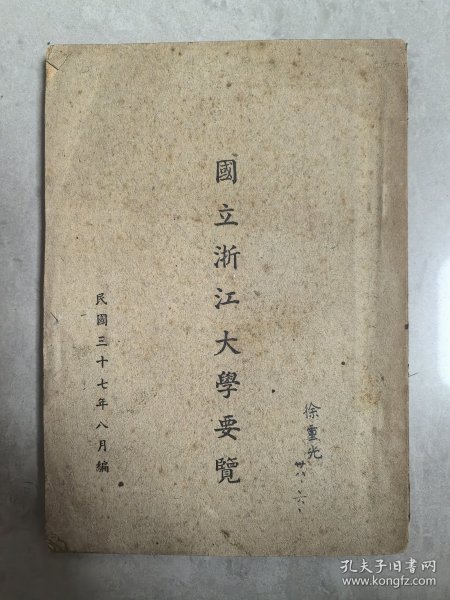 徐重光
卅八、六、
國立浙江大學要覽
民國三十七年八月編
孔夫子旧书网
www.kongfz.com